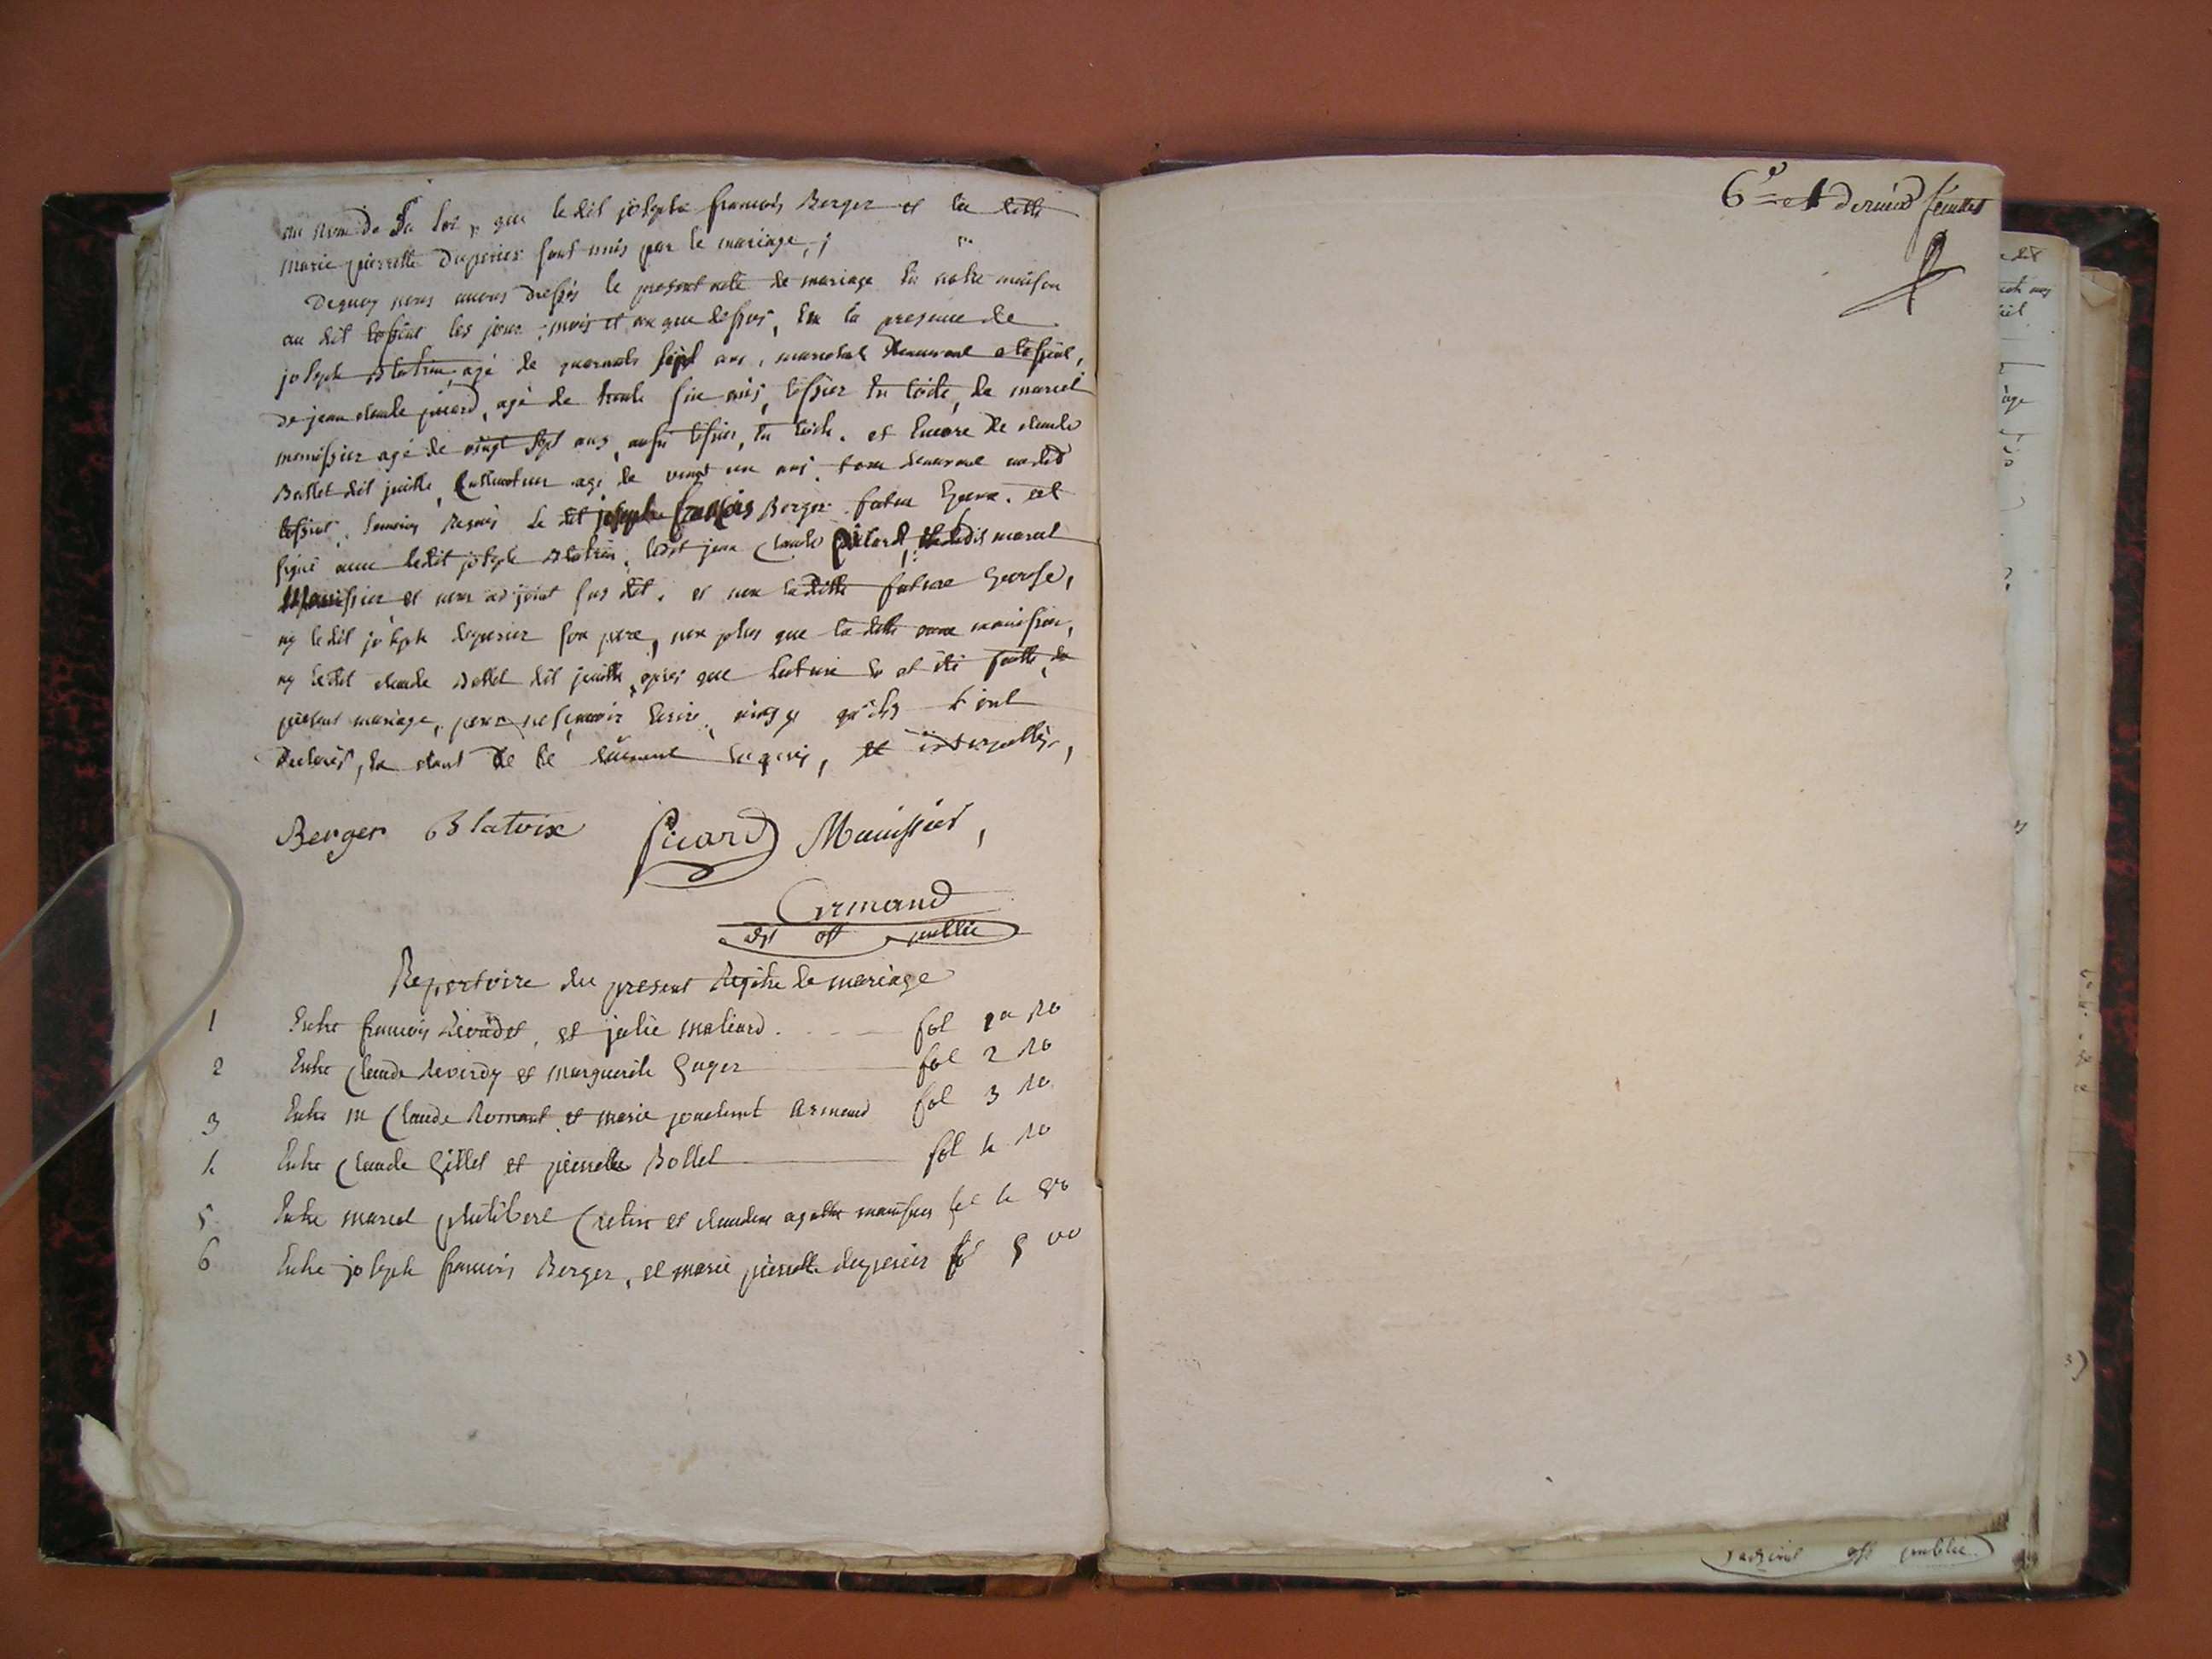 au nom de la loi, que ledit joseph francois Berger et la ditte
marie pierrette Duperier sont unis par le mariage, ;
Dequoy nous avons dressés le present acte de mariage en notre maison
au dit les jour, mois et an que dessus, en la presence de
joseph Blatrix agé de quarante sept ans, marechal demeurant a
De jean claude picard, agé de trente six ans, tessier en toile, de marcel
monissier agé de vingt sept ans, aussi tessier, en toile. et encore de claude
Bollet dit juille, Cultivateur agé de vingt un ans. tous demeurant audit
temoins requis le dit joseph françois Berger futur Epoux. at
signé avec ledit joseph Blatrix, ledit jean Claude Picard, et ledit marcel
Monissier et nous adjoint sus dit. et non la ditte future Epouse,
ny ledit joseph duperier son pere, non plus que la ditte monissier,
ny ledit claude Bollet dit juille, apres que lecture a été faitte du
present mariage, pour ne sçavoir Ecrire, ainsy qu'ils l'ont
Declarés, en etant de ce düement enquis, et interpellés,
Berger Blatrix Picard Monissier,
Armand
adj off public
Repertoire du present Regitre de mariage
1 Entre francois et julie maliard. fol 1a Ro
2 Entre Claude Reverdy et marguerite fol 2 Ro
3 Entre m Claude Romand et marie Armand fol 3 Ro
4 Entre Claude Gillet et pierrette Bollet fol 4 Ro
5 Entre marcel philibert Cretin et claudine agathe monissier fol 4 Vo
6 Entre joseph francois Berger, et marie pierrette duperier fo 5 Vo
6e et dernier feuillet
adjoint off public